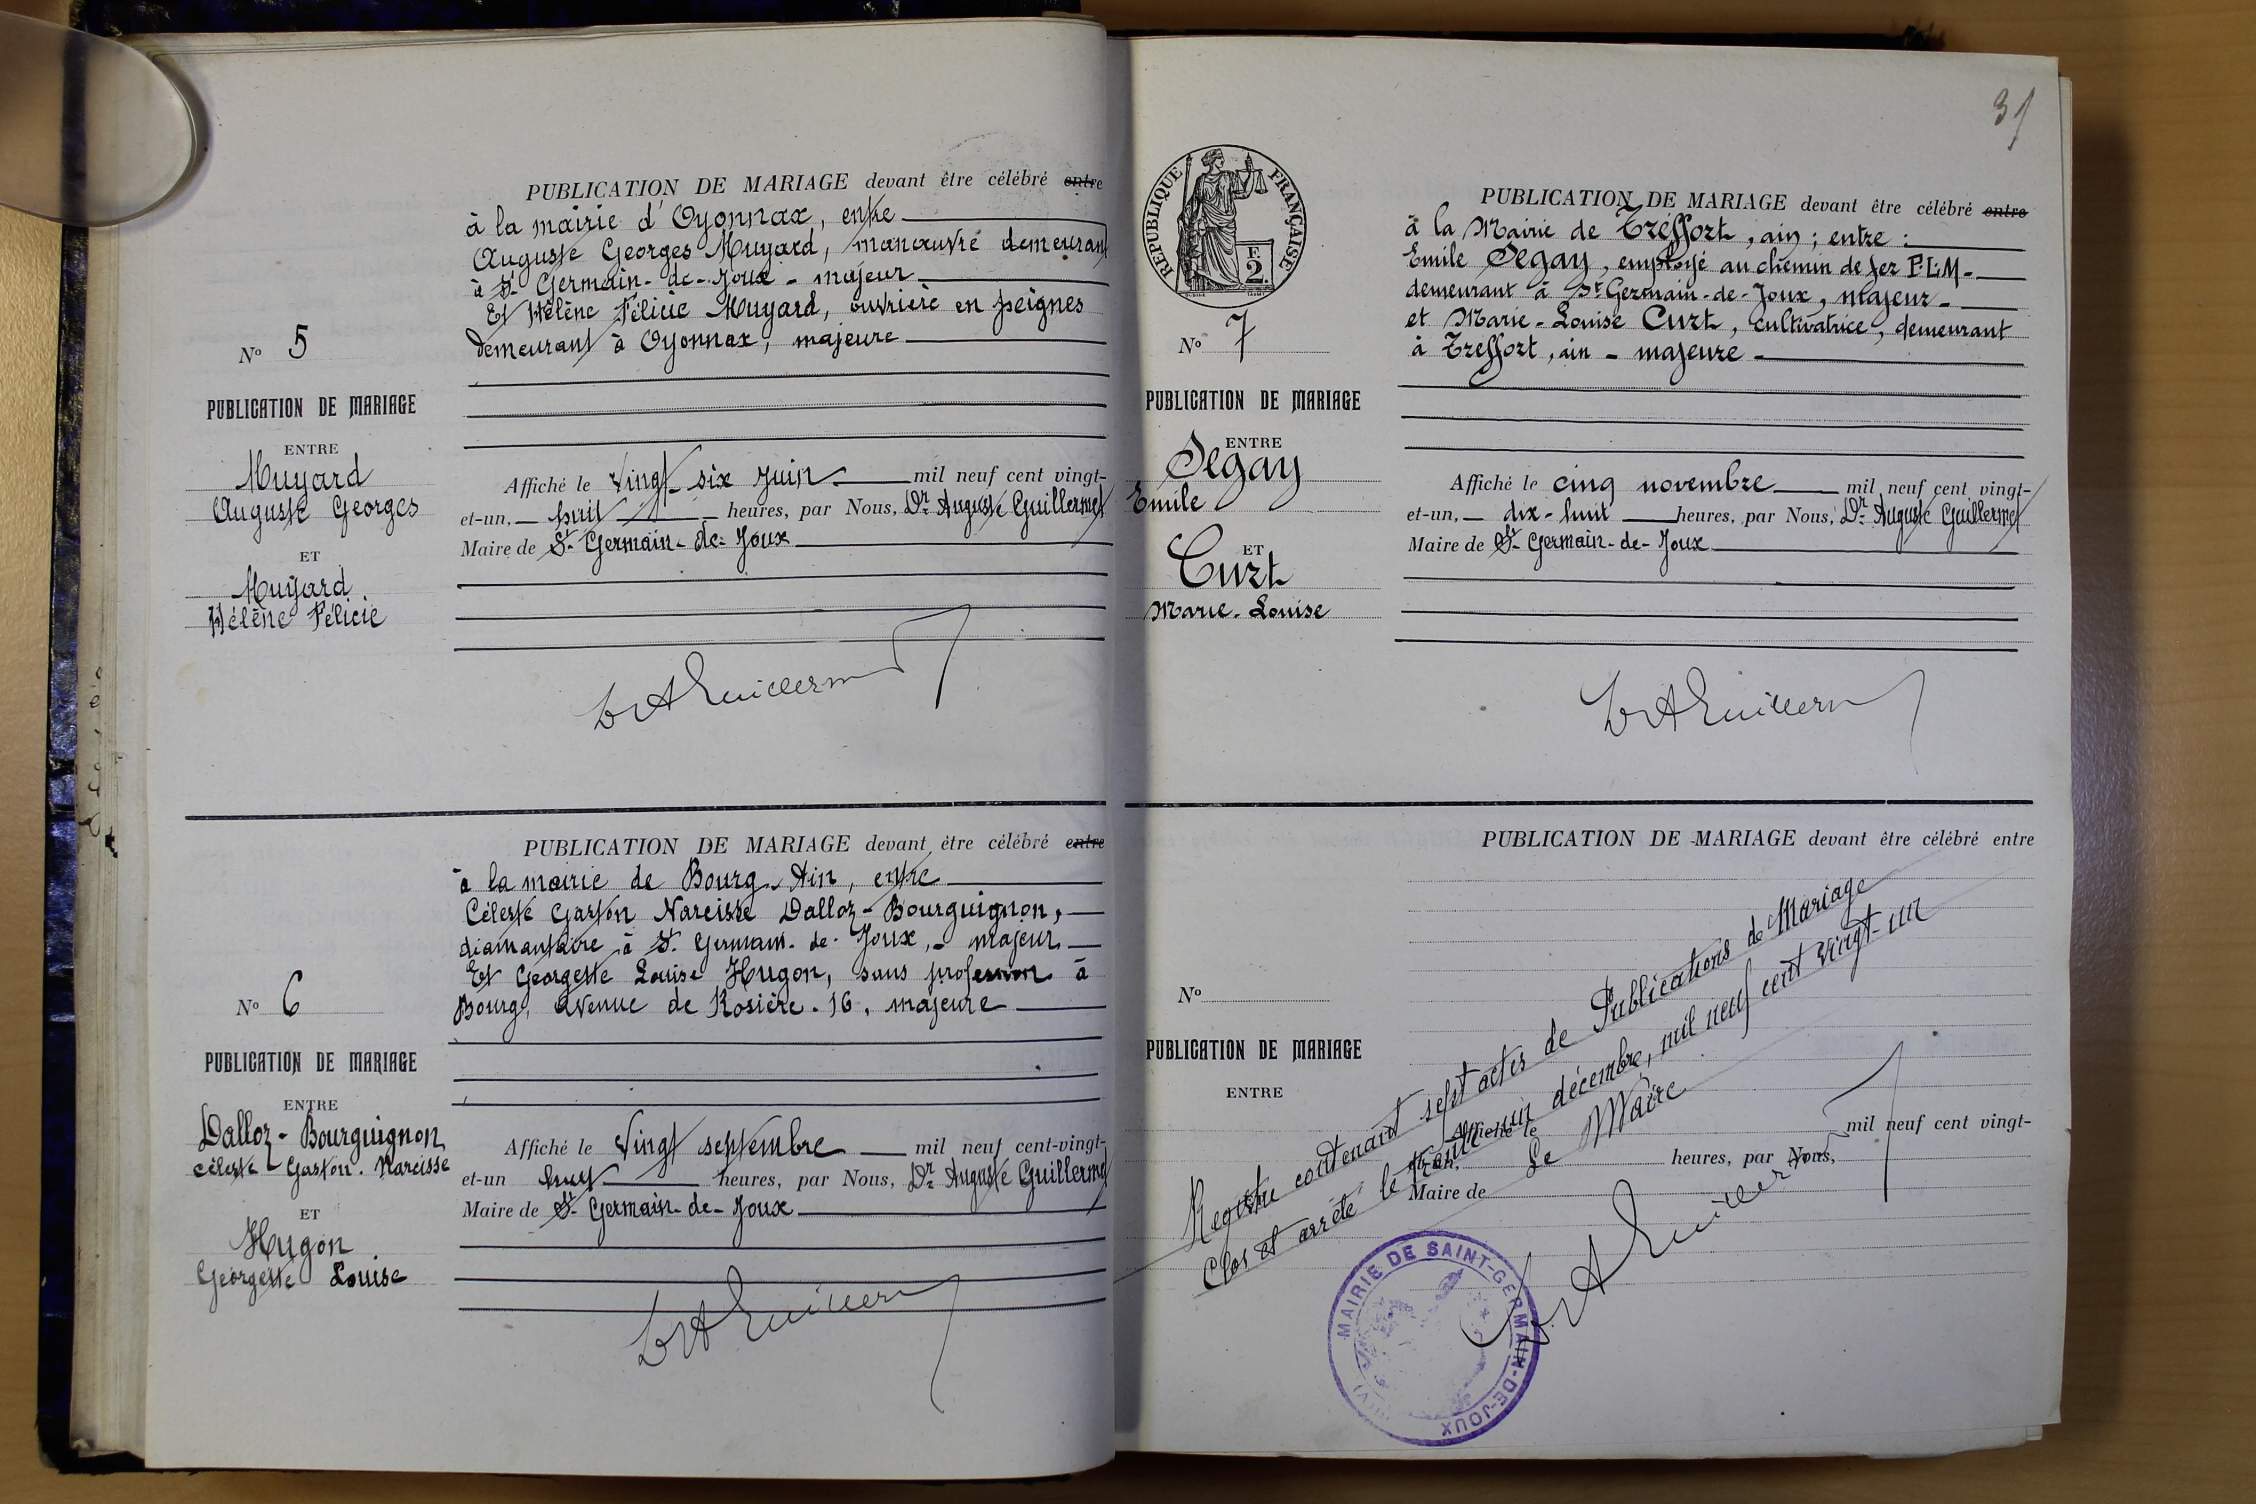 PUBLICATION DE MARIAGE devant être célébré entre
à la mairie d'Oyonnax, entre
Auguste Georges Muyard, manœuvre demeurant
à St Germain-de-Joux - majeur
Et Hélène Félicie Muyard, ouvrière en peignes
demeurant à Oyonnax, majeure
N° 5
PUBLICATION DE MARIAGE
ENTRE
Muyard
Auguste Georges
ET
Muyard
Hélène Félicie
Affiché le Vingt six Juin mil neuf cent vingt-
et-un, huit heures, par Nous, Dr Auguste Guillermet
Maire de St Germain-de-Joux
Dr A Guillermet
PUBLICATION DE MARIAGE devant être célébré entre
à la mairie de Bourg, Ain, entre
Céleste Gaston Narcisse Dalloz-Bourguignon,
diamantaire à St Germain-de-Joux, - majeur
Et Georgette Louise Hugon, sans profession à
Bourg, avenue de Rosière. 16, majeure
N° 6
PUBLICATION DE MARIAGE
ENTRE
Dalloz-Bourguignon
Céleste Gaston. Narcisse
ET
Hugon
Georgette Louise
Affiché le Vingt septembre mil neuf cent-vingt-
et-un heures, par Nous, Dr Auguste Guillermet
Maire de St Germain-de-Joux
Dr A Guillermet
31
RÉPUBLIQUE FRANÇAISE
E
2.
PUBLICATION DE MARIAGE devant être célébré entre
à la Mairie de Tréffort, ain; entre:
Emile Segay, employé au chemin de fer P.L.M-
demeurant à St Germain-de-Joux, majeur-
et Marie-Louise Curt, cultivatrice, demeurant
à Treffort, ain - majeure-
N° 7
PUBLICATION DE MARIAGE
ENTRE
Segay
Emile
ET
Curt
Marie-Louise
Affiché le cinq novembre mil neuf cent vingt-
et-un, dix-huit heures, par Nous, Dr Auguste Guillermet
Maire de St Germain-de-Joux
Dr A Guillermet
PUBLICATION DE MARIAGE devant être célébré entre
N°
PUBLICATION DE MARIAGE
ENTRE
Affiché le mil neuf cent vingt-
heures, par Nous,
Maire de
Registre contenant sept actes de Publications de Mariage
Clos et arrêté le trente-un décembre, mil neuf cent vingt-un
Le Maire
Dr A Guillermet
MAIRIE DE SAINT-GERMAIN-DE-JOUX
(AIN)